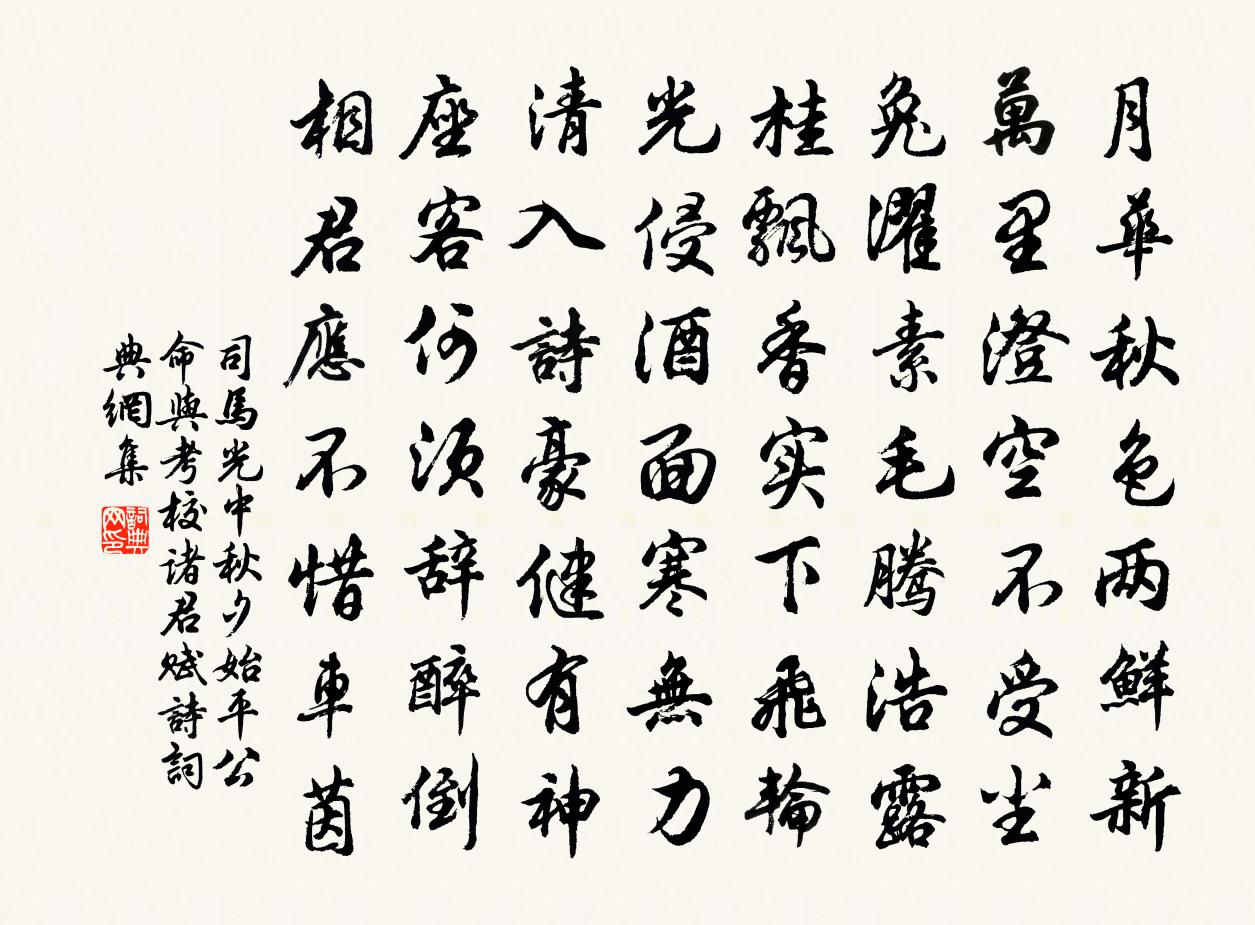 月華秋色两鮮新
萬里澄空不受尘
兔濯素毛騰浩露
桂飄香实下飛輪
光侵酒面寒無力
清入詩豪健有神
座客何须辞醉倒
相君應不惜車茵
司馬光中秋夕始平公
命與考校诸君赋詩詞
典網集
詞典网印